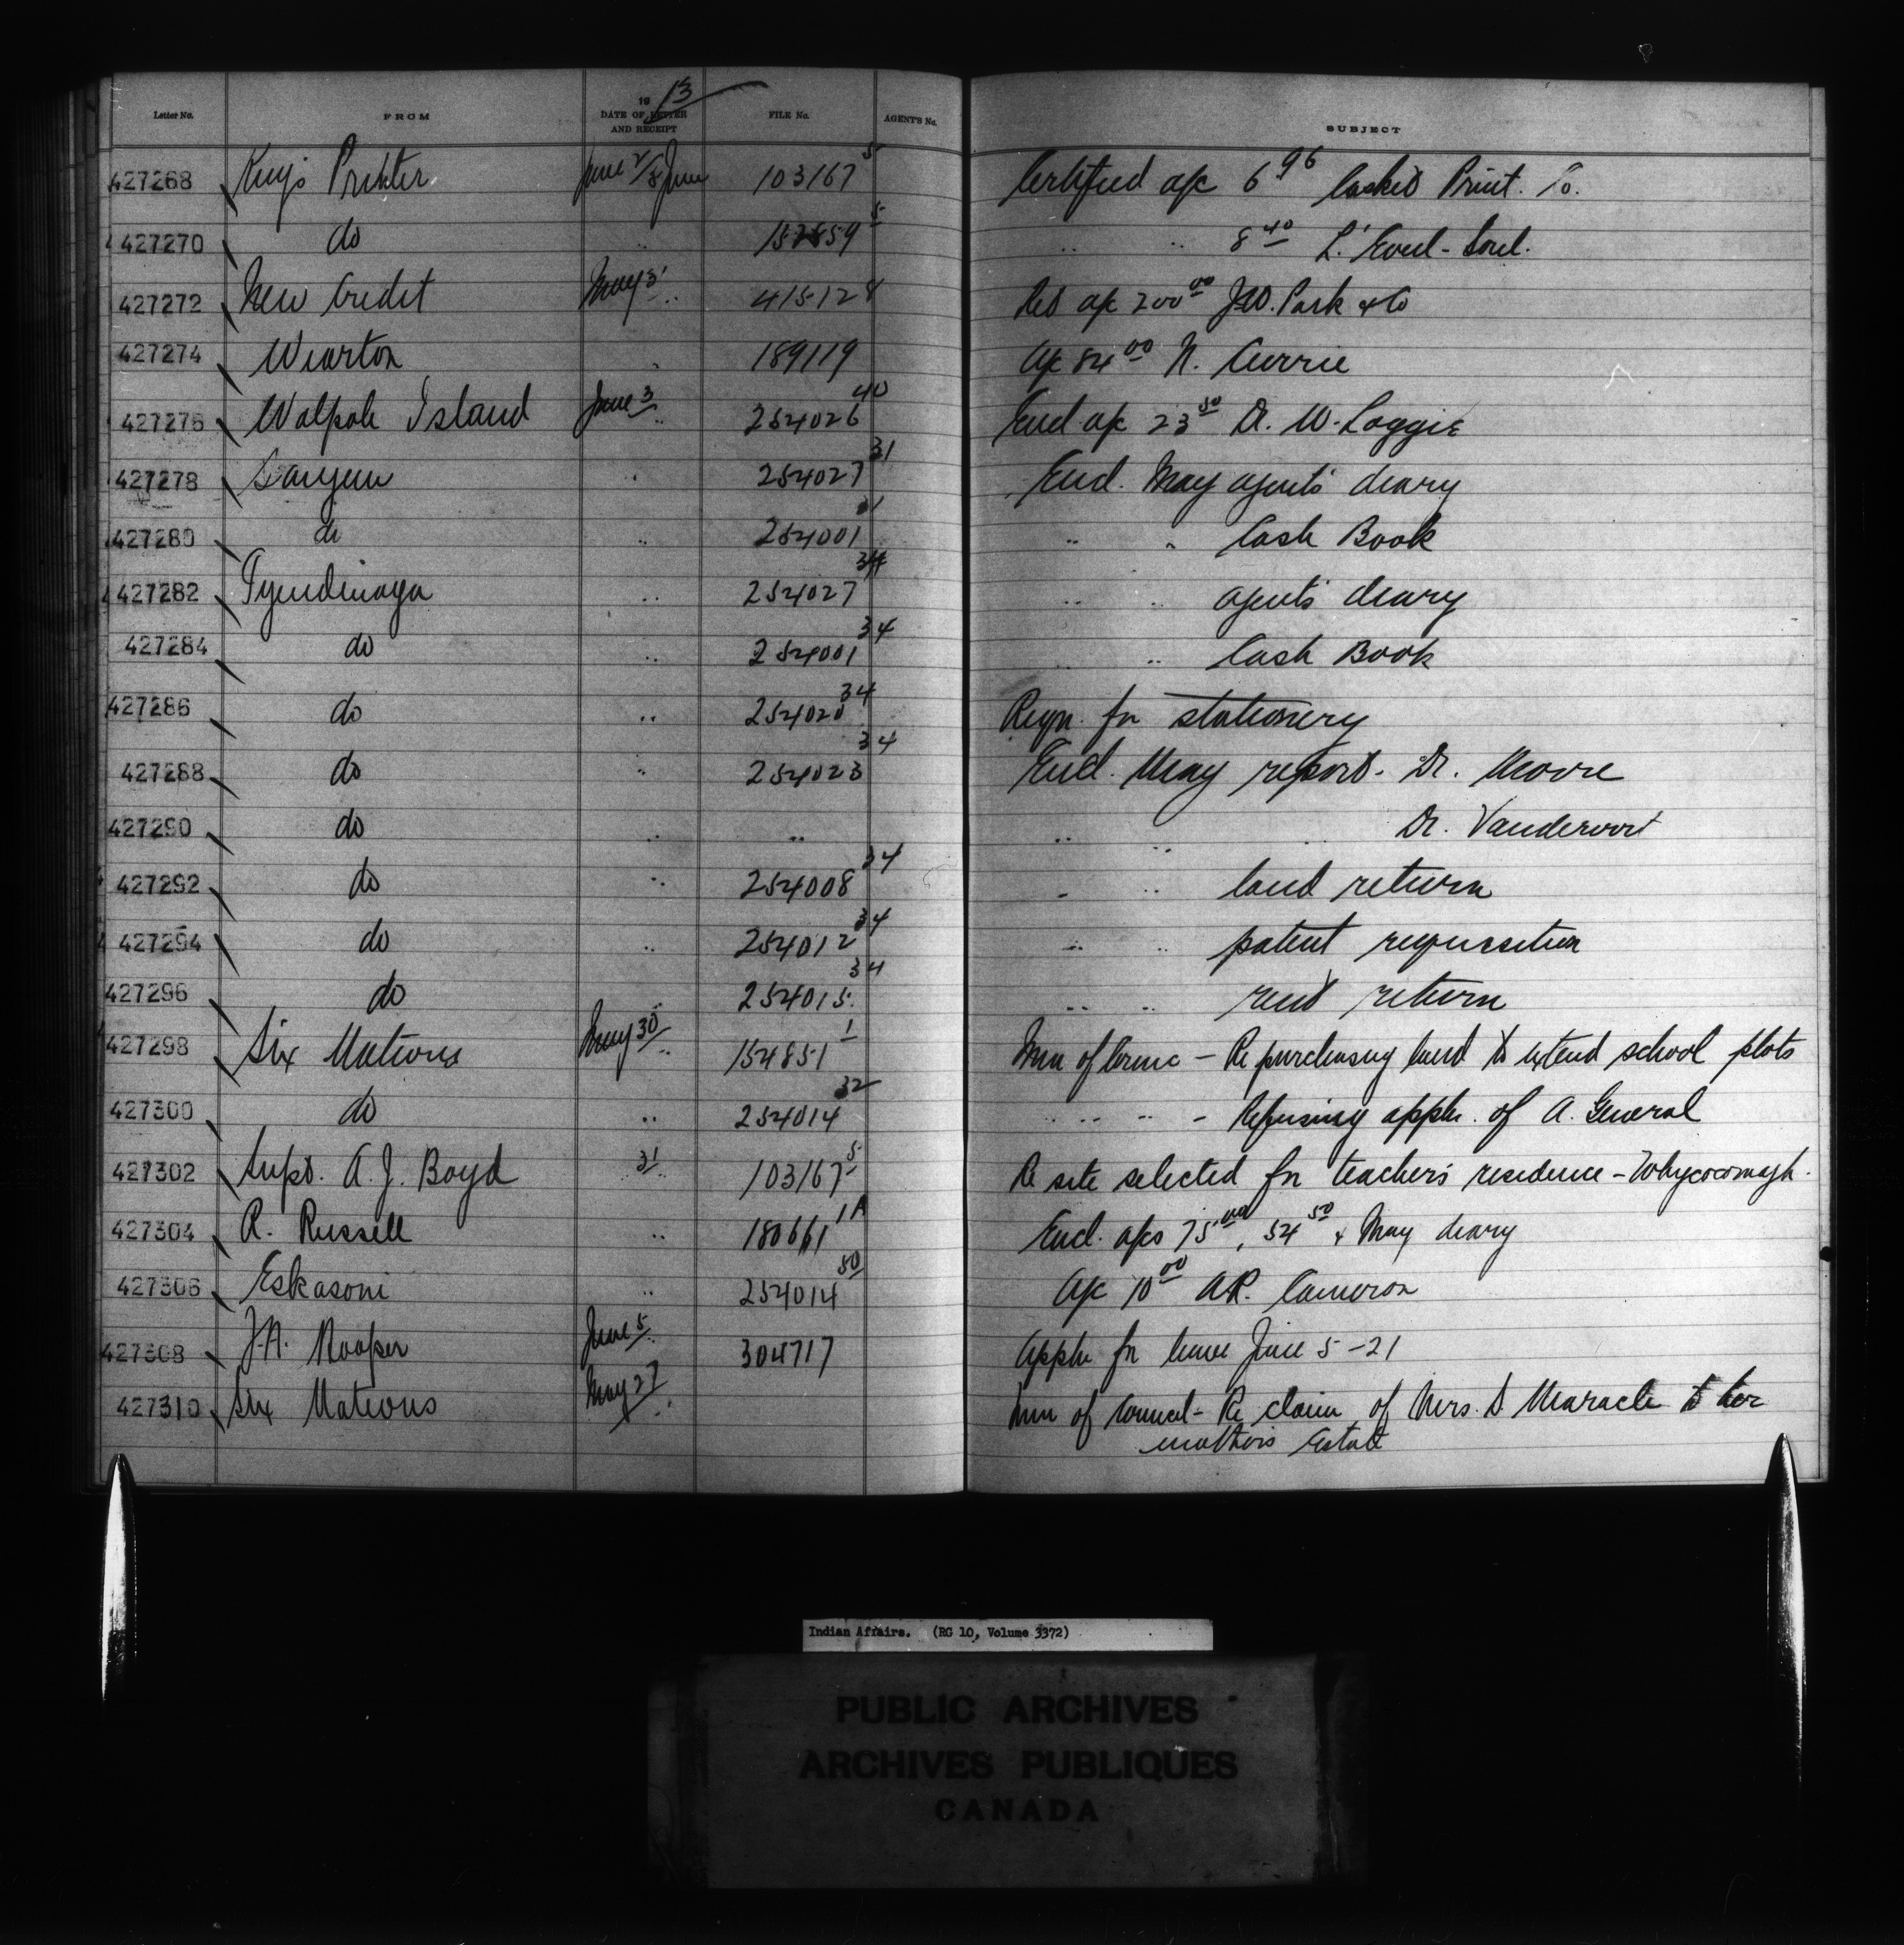 Letter No. FROM 1913 DATE OF LETTER AND RECEIPT FILE No. AGENT'S No. SUBJECT
427268 King's Printer June 2/8 June 103167 5 Certified a/c 6 96 Casket Print. Co.
427270 do .. 157859 5 .. .. 8 40 L'Evel-Soul.
427272 New Credit May 31 .. 415128 Ret a/c 200 00 J.W. Park & Co
427274 Wiarton .. 189119 a/c 84 00 N. Currie
427276 Walpole Island June 3 .. 254026 40 Encl. a/c 23 50 Dr. W. Loggie
427278 Saugeen .. 254027 31 Encl. May agent's diary
427280 do .. 254001 31 .. .. Cash Book
427282 Tyendinaga .. 254027 34 .. .. agent's diary
427284 do .. 254001 34 .. .. Cash Book
427286 do .. 254020 34 Reqn. for stationery
427288 do .. 254023 34 Encl. May report. Dr. Moore
427290 do .. .. .. .. .. Dr. Vandervort
427292 do .. 254008 34 .. .. land return
427294 do .. 254012 34 .. .. patent requisition
427296 do .. 254015 34 .. .. rent return
427298 Six Nations May 30 .. 154851 1 Min of Counc - Re purchasing land to extend school plots
427300 do .. 254014 32 .. .. .. - Refusing appln. of A. General
427302 Supt. A. J. Boyd 31 .. 103167 5 Re site selected for teacher's residence - Whycocomagh.
427304 R. Russell .. 180661 1A Encl. a/cs 75 00, 54 50 & May diary
427306 Eskasoni .. 254014 50 a/c 10 00 A.R. Cameron
427308 J.A. Rooper June 5 .. 304717 Appln for leave June 5-21
427310 Six Nations May 27 .. Min of Council - Re claim of Mrs. S Maracle to her
mother's Estate
Indian Affairs. (RG 10, Volume 3372)
PUBLIC ARCHIVES
ARCHIVES PUBLIQUES
CANADA